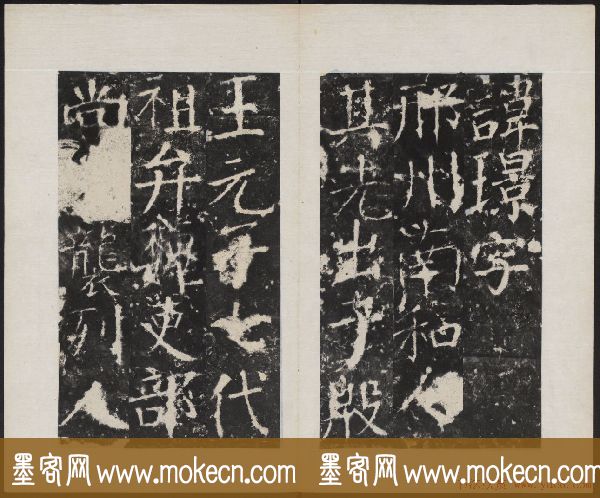 諱璟字
邢州南和人
其先出于殷
王元子七代
祖弁魏吏部
尚 襲列人
墨客网 www.mokecn.com 墨客网 www.mokecn.com